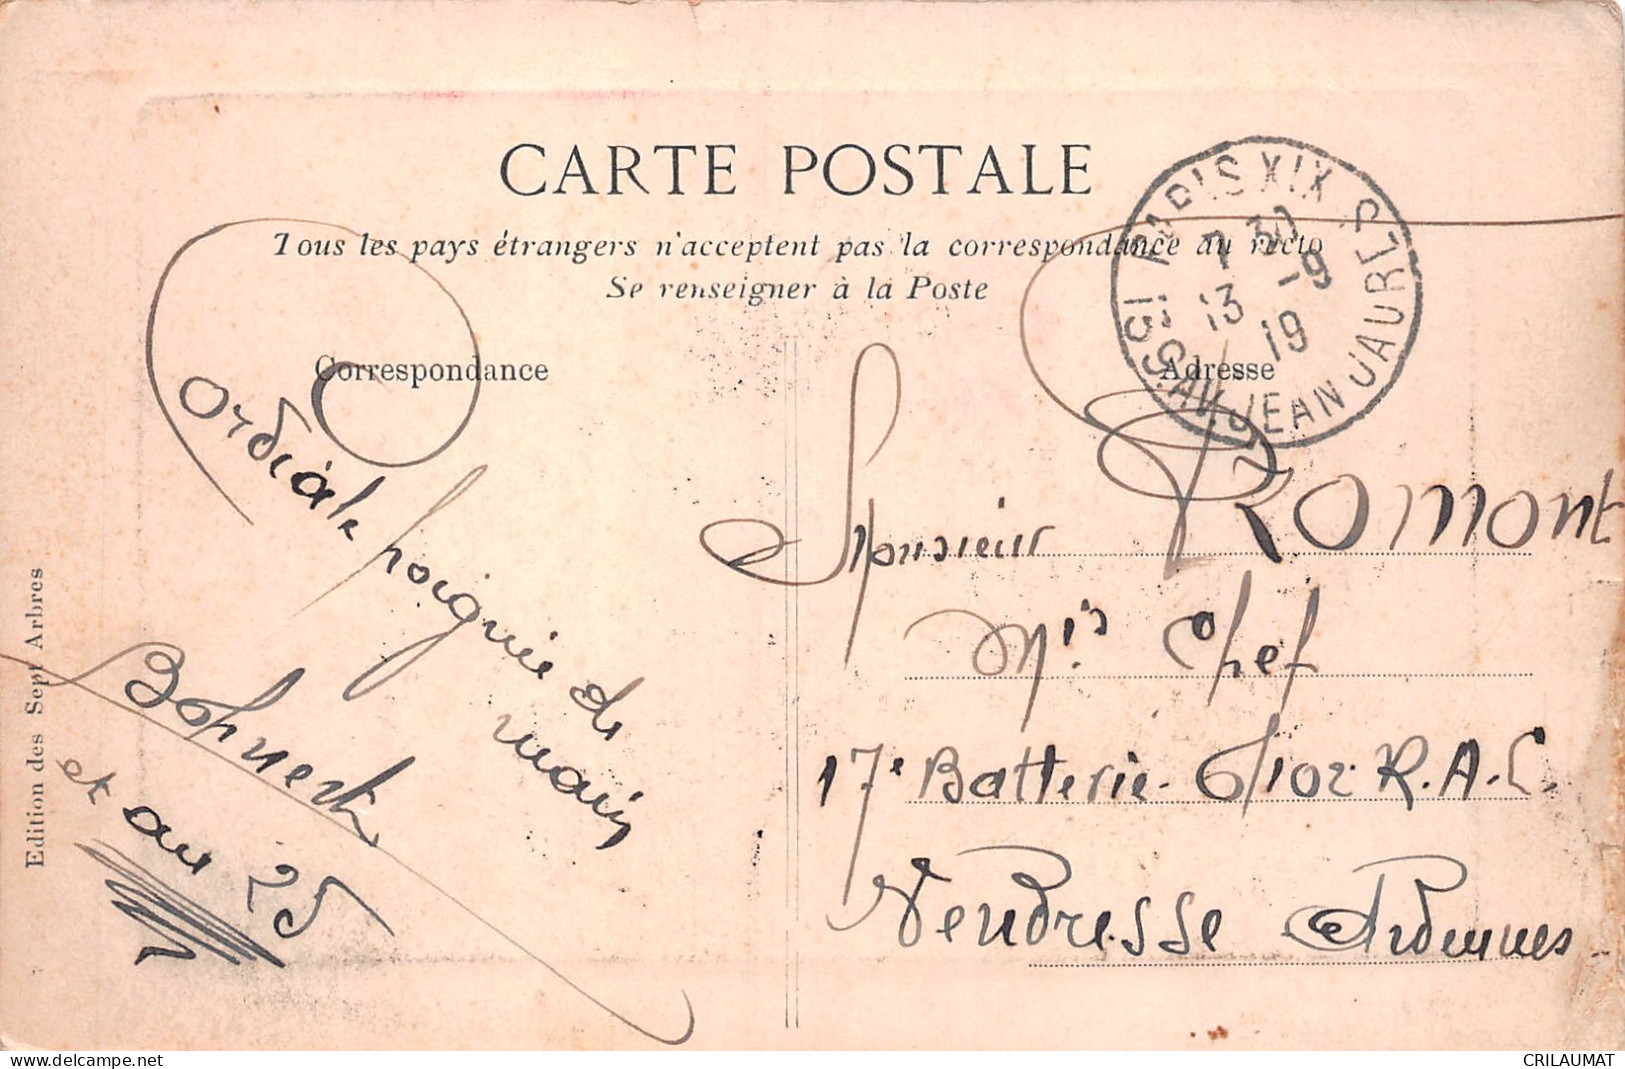 CARTE POSTALE
Tous les pays étrangers n'acceptent pas la correspondance au recto
Se renseigner à la Poste
Correspondance
Adresse
PARIS XIX
7 30
13 -9
19
159. AV. JEAN JAURES
Cordiale poignée de
main
Bohnert
et au 25
Monsieur Romont
Mis Chef
17e Batterie. 6/102 R.A.L.
Vendresse Ardennes
Edition des Sept Arbres
CRILAUMAT